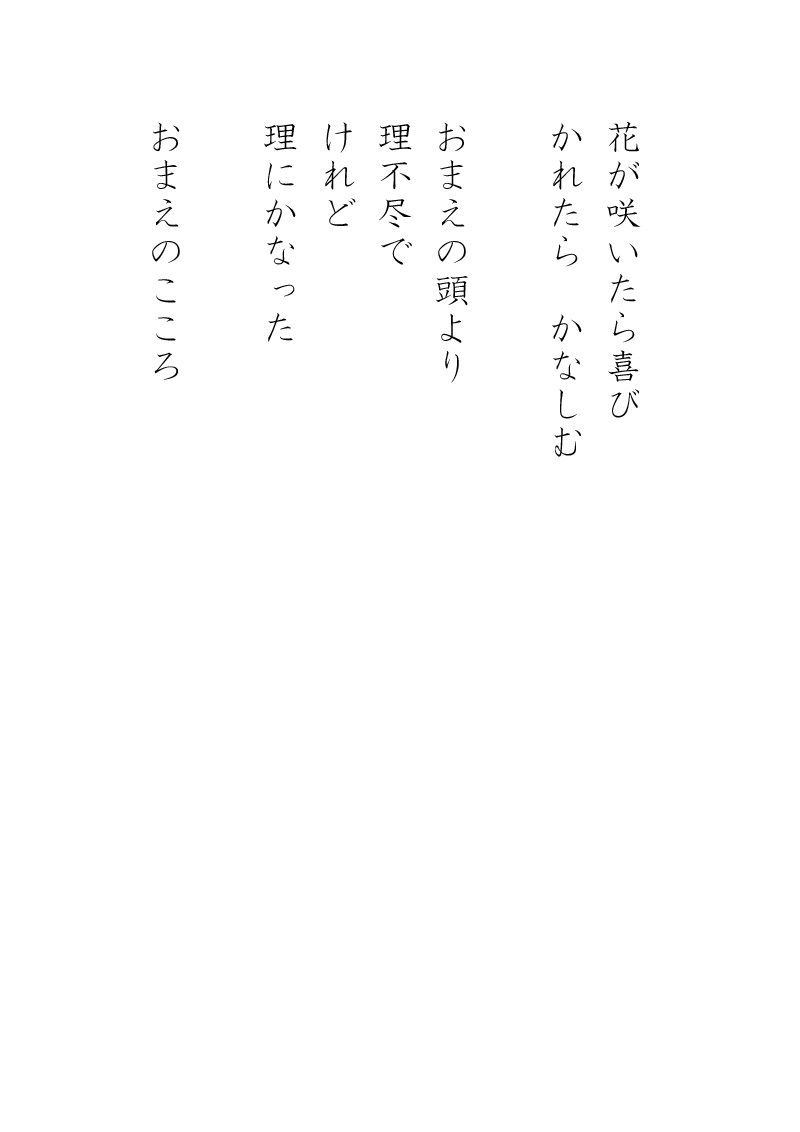 花が咲いたら喜び
かれたら　かなしむ
おまえの頭より
理不尽で
けれど
理にかなった
おまえのこころ